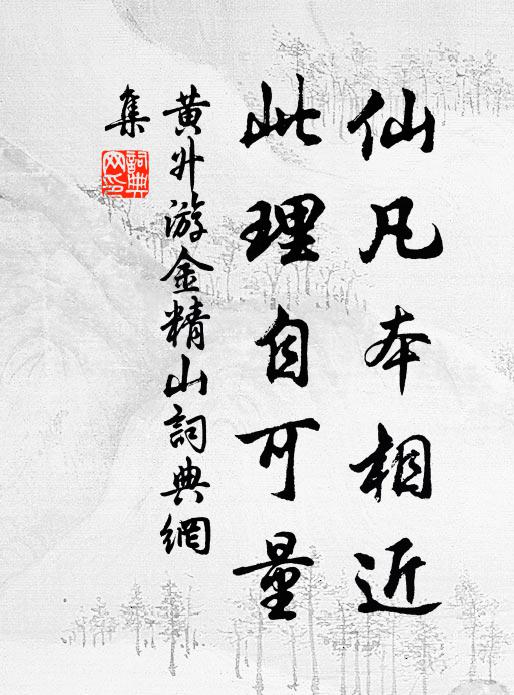 仙凡本相近
此理自可量
黄升游金精山詞典網
集
詞典
网印